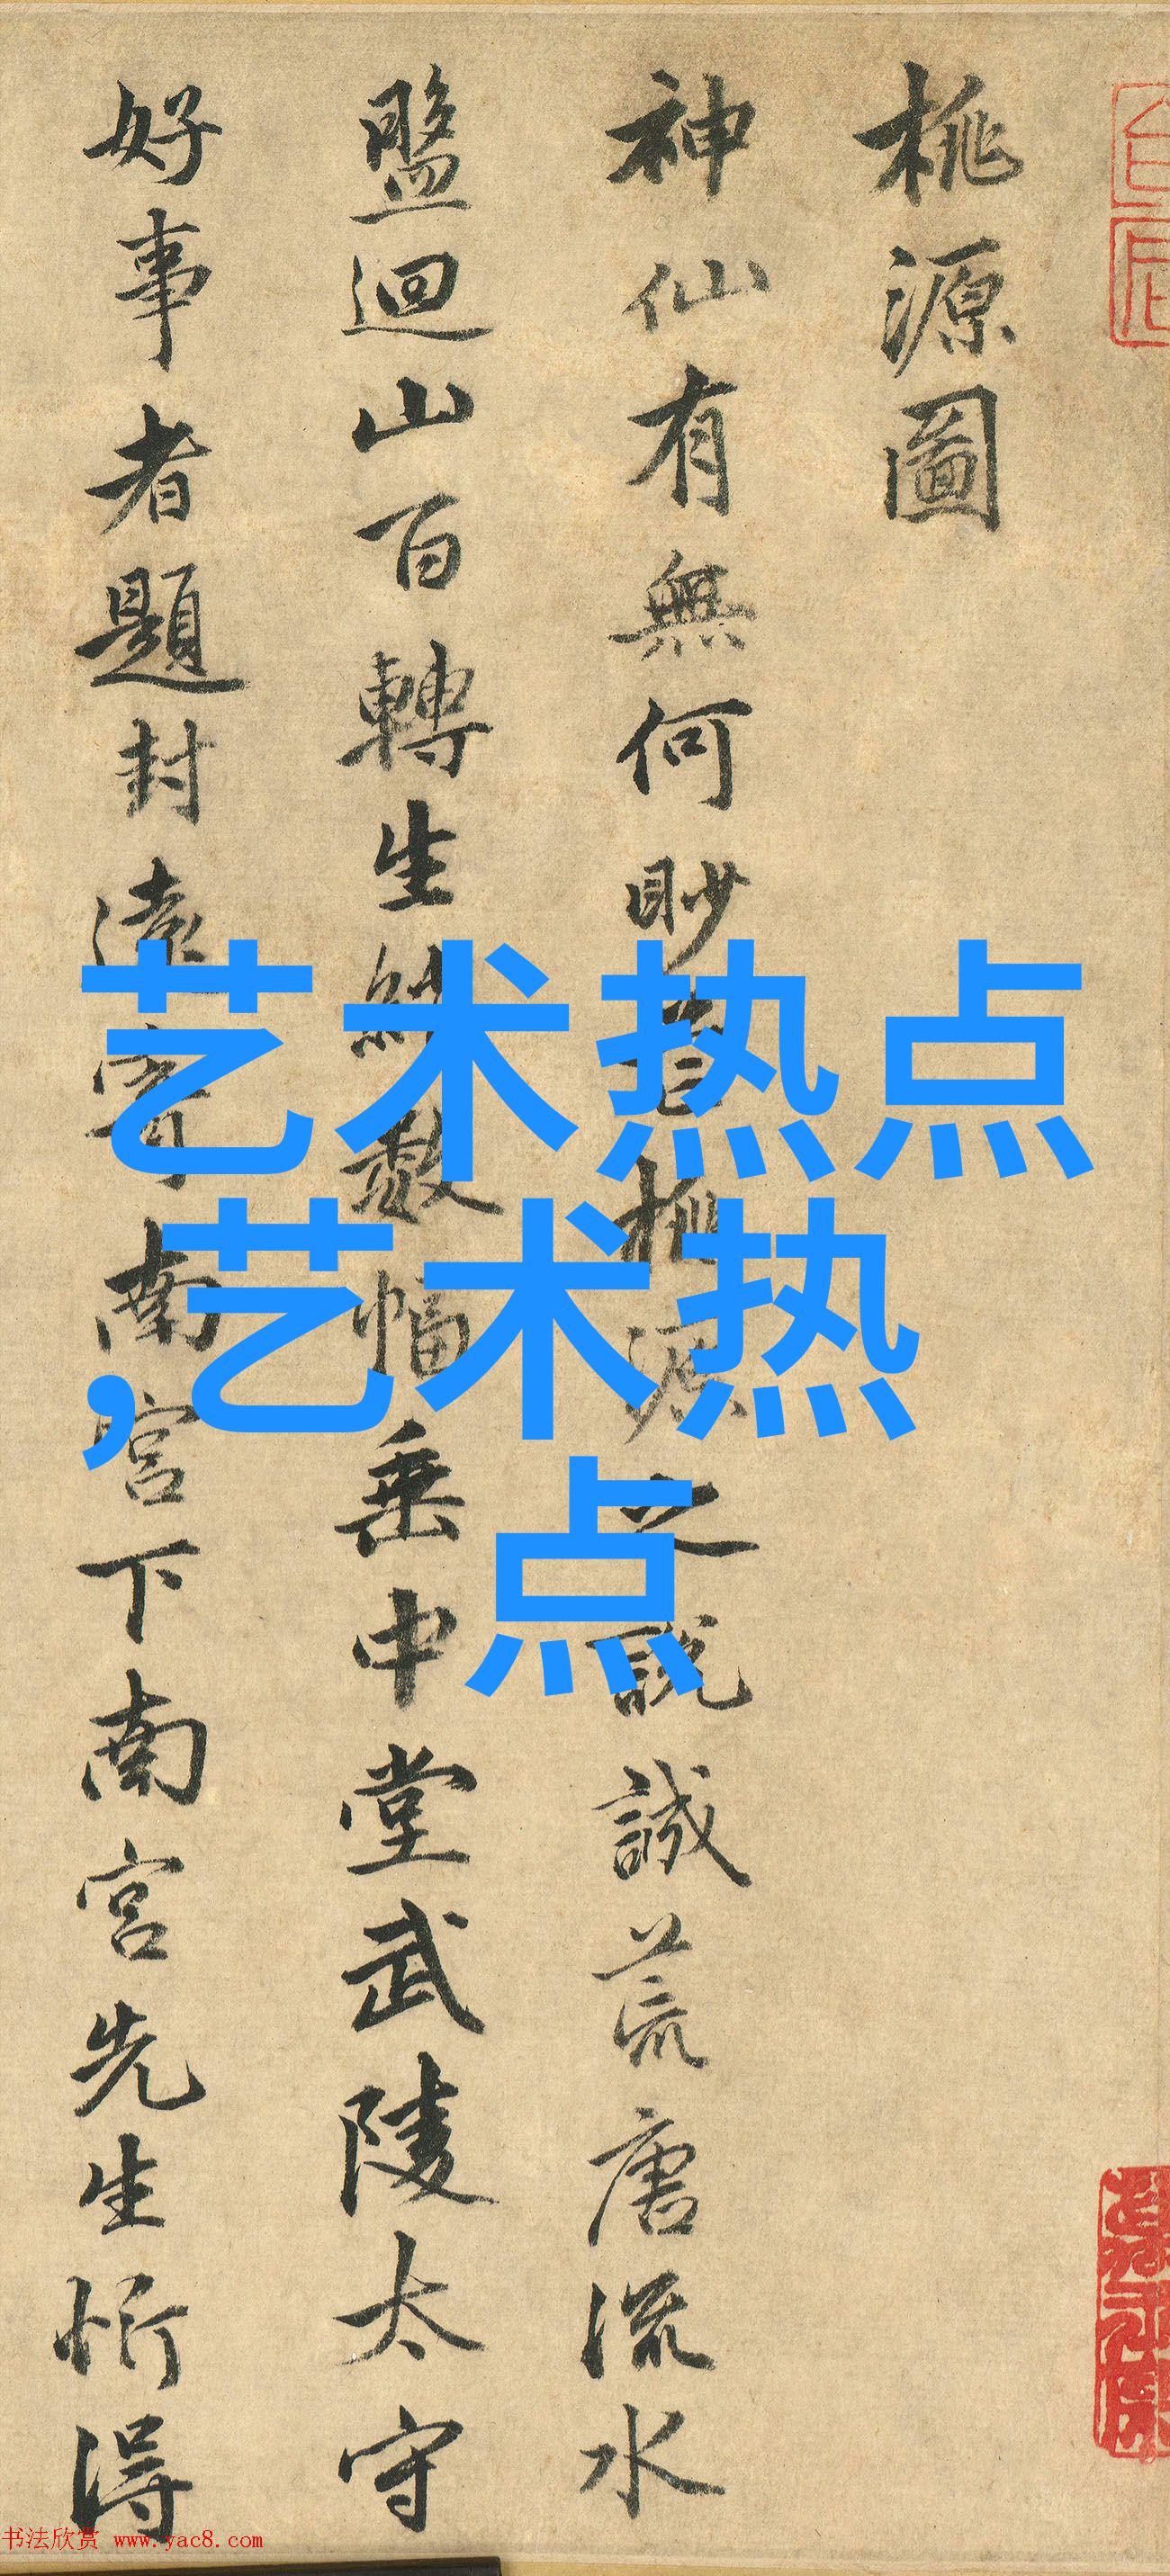 桃源圖
神仙有無何眇芒桃源之説誠荒唐流水
盤迴山百轉生綃數幅垂中堂武陵太守
好事者題封遠寄南宮下南宮先生忻得
艺术热点
,艺术热
点
书法欣赏 www.yac8.com